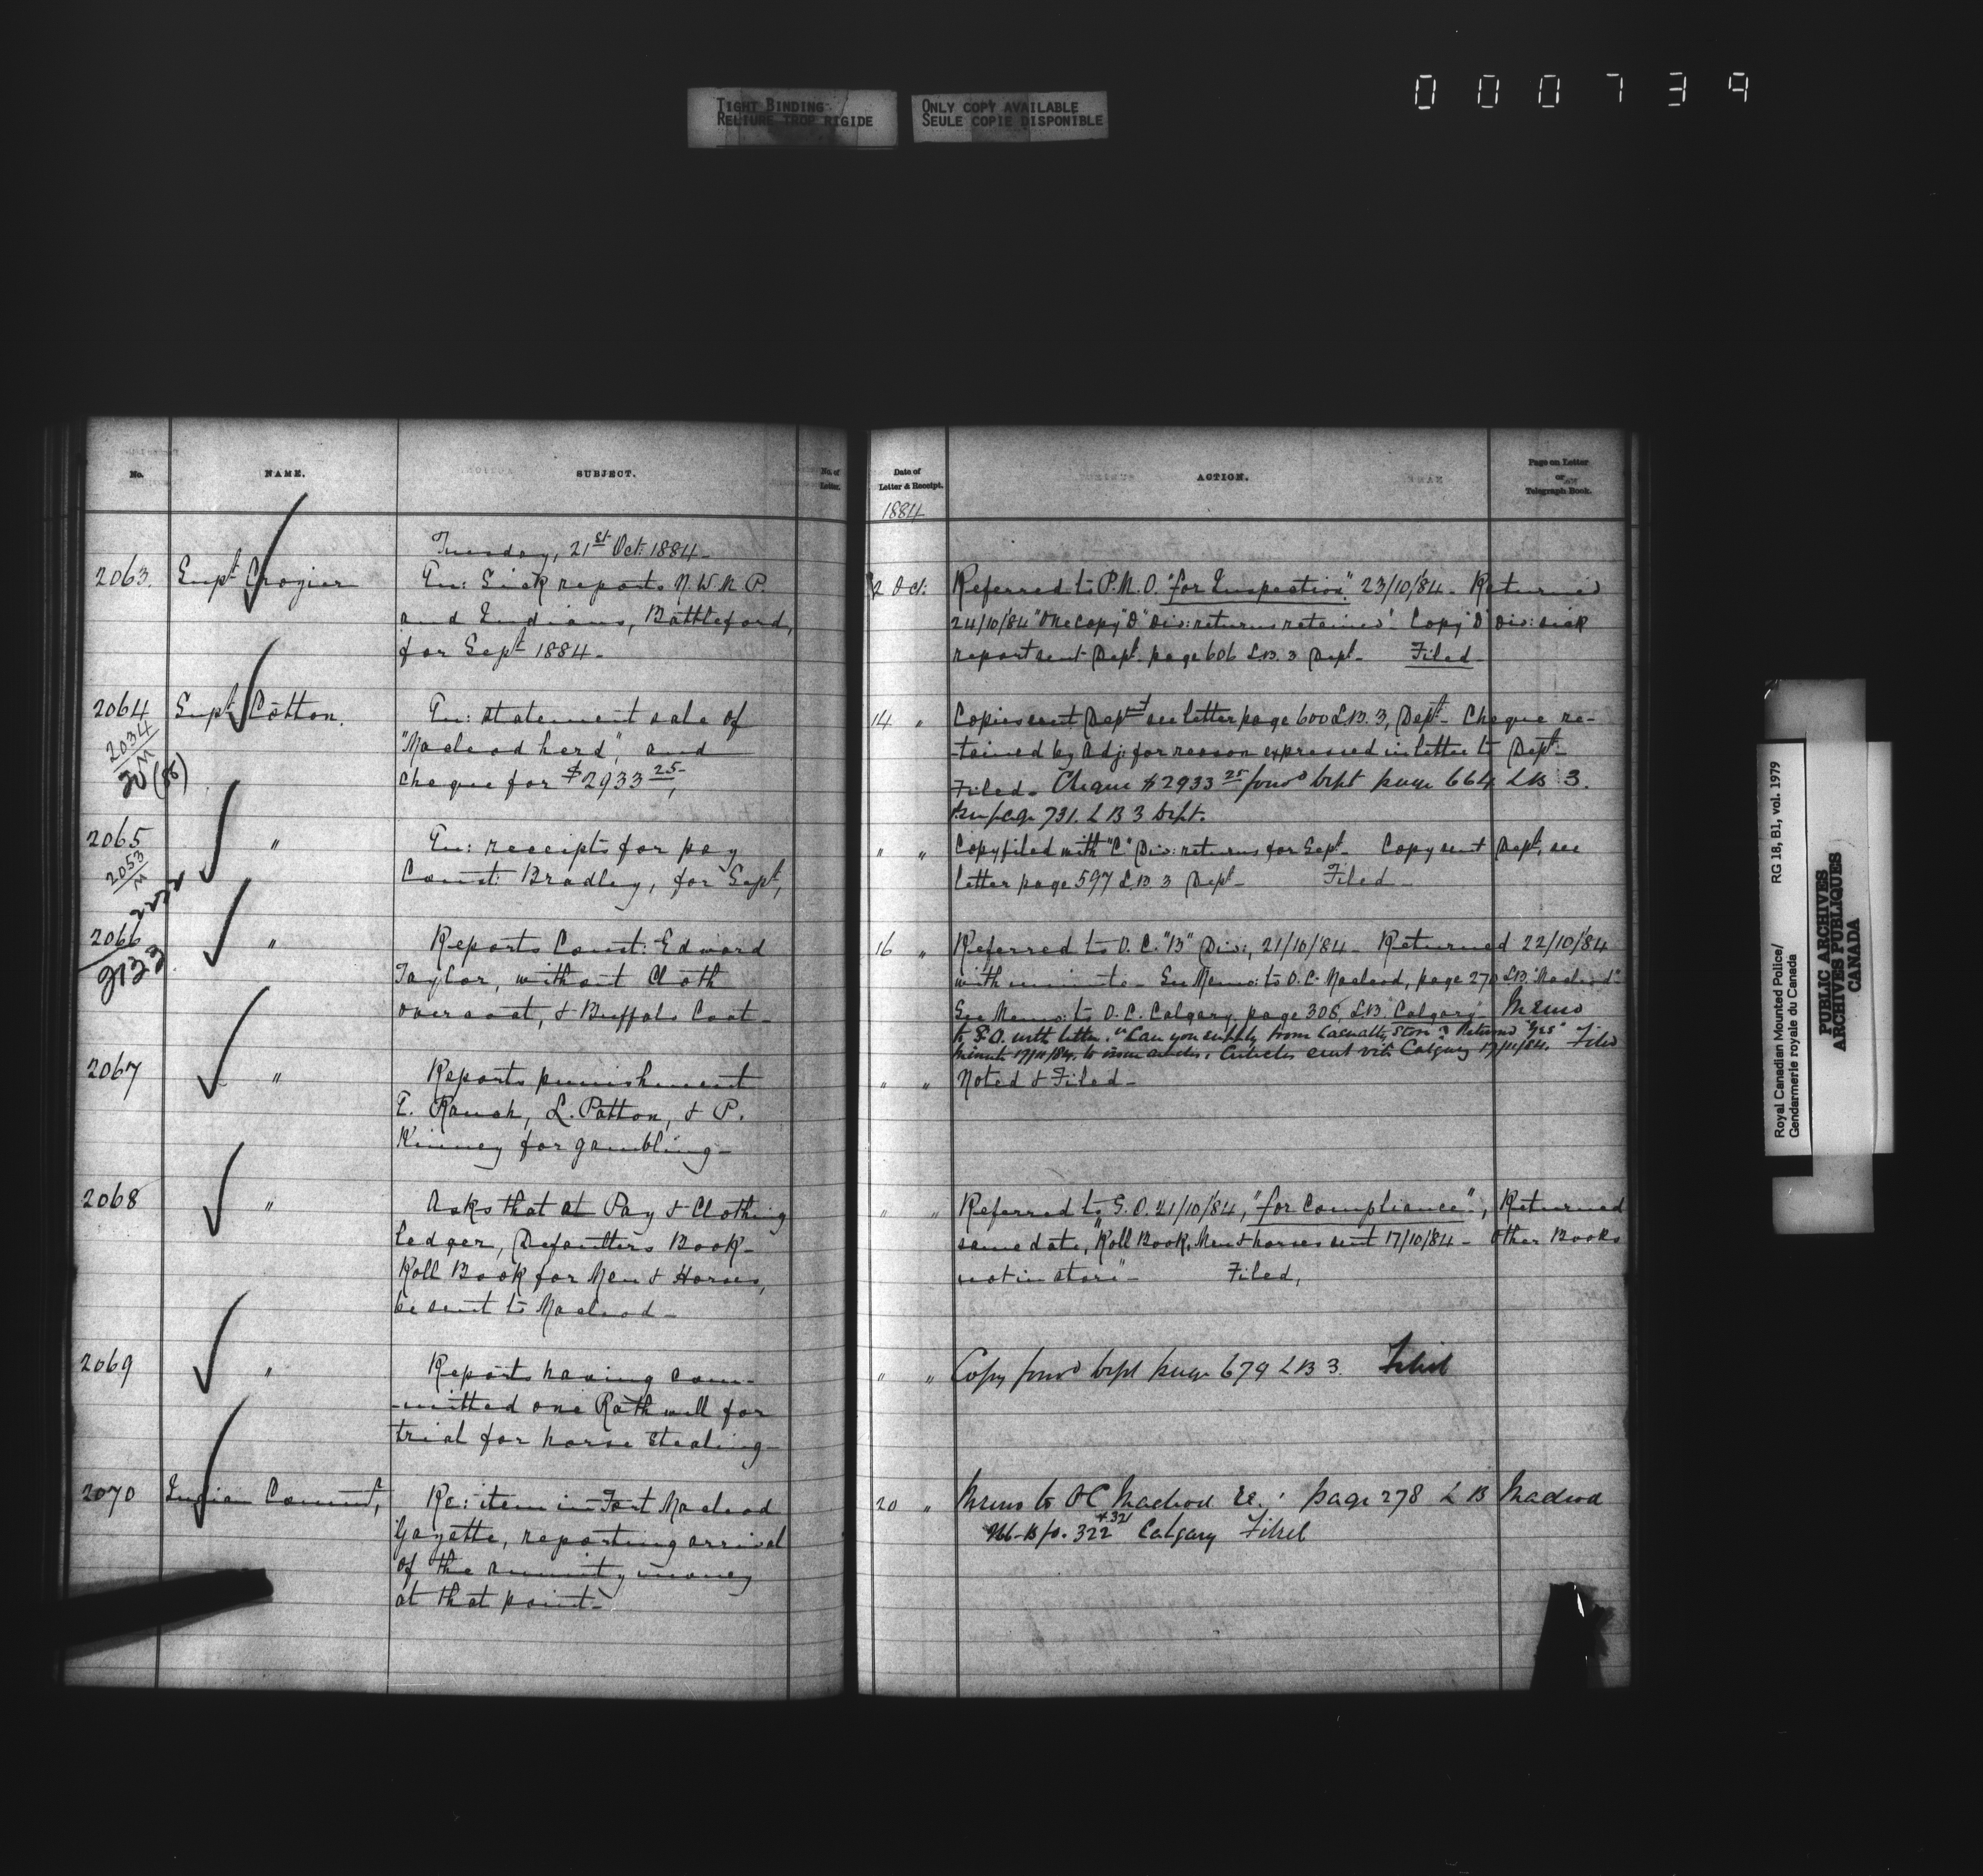 000739
TIGHT BINDING
RELIURE TROP RIGIDE
ONLY COPY AVAILABLE
SEULE COPIE DISPONIBLE
No.
NAME.
SUBJECT.
No. of Letter.
Tuesday, 21st Oct: 1884-
2063. Supt Crozier En: Sick reports N.W.M.P.
and Indians, Battleford,
for Sept 1884-
2064 Supt Cotton. En: statement sale of
2034/M "Macleod herd", and
20 (86) cheque for $2933 25,
2065 " En: receipts for pay
2053/M Const: Bradley, for Sept,
2066 " Reports Const: Edward
2133 Taylor, without Cloth
overcoat, & Buffalo Coat-
2067 " Reports punishment
Kinney for gambling-
2068 " Asks that at Pay & Clothing
Ledger, Defaulters Book-
Roll Book for Men & Horses,
be sent to Macleod-
2069 " Reports having com-
-mitted one Rothwell for
trial for horse stealing-
2070 Indian Commr, Re: item in Fort Macleod
Gazette, reporting arrival
of the annuity money
at that point-
Date of Letter & Receipt.
ACTION.
Page on Letter or Telegraph Book.
1884
2 Oct: Referred to P.M.O. "for Inspection" 23/10/'84- Returned
24/10/'84 "One copy "D" Div: returns retained". Copy "D" Div: sick
report sent Dept. page 606 L.B. 3 Dept- Filed-
14 " Copies sent Dept see letter page 600 L.B. 3, Dept- Cheque re-
-tained by Adj: for reason expressed in letter to Dept-
Filed- Cheque $2933 25 forwd Dept page 664 L B 3.
See page 731. L B 3 Dept.
" " Copy filed with "C" Div: returns for Sept- Copy sent Dept, see
letter page 597 L.B 3 Dept- Filed-
16 " Referred to O.C. "B" Div:, 21/10/'84- Returned 22/10/'84
with minute- See Memo: to O.C. Macleod, page 270 L.B. "Macleod"
See Memo: to O.C. Calgary, page 306, L.B. Calgary- Memo
to S.O. with letter. "Can you supply from Casualty Store? Returned "Yes"
Minute 17/11/84. to issue articles. Articles sent via Calgary 17/11/84. Filed
" " Noted & Filed-
" " Referred to S.O. 21/10/'84, "for compliance", Returned
same date, "Roll Book, Men & horses sent 17/10/'84- Other Books
not in store"- Filed,
" " Copy forwd Dept page 679 L B 3. Filed
20 " Memo to OC Macleod re: page 278 L B Macleod
322 & 321 Calgary Filed
Royal Canadian Mounted Police/ RG 18, B1, vol. 1979
Gendarmerie royale du Canada
PUBLIC ARCHIVES
ARCHIVES PUBLIQUES
CANADA